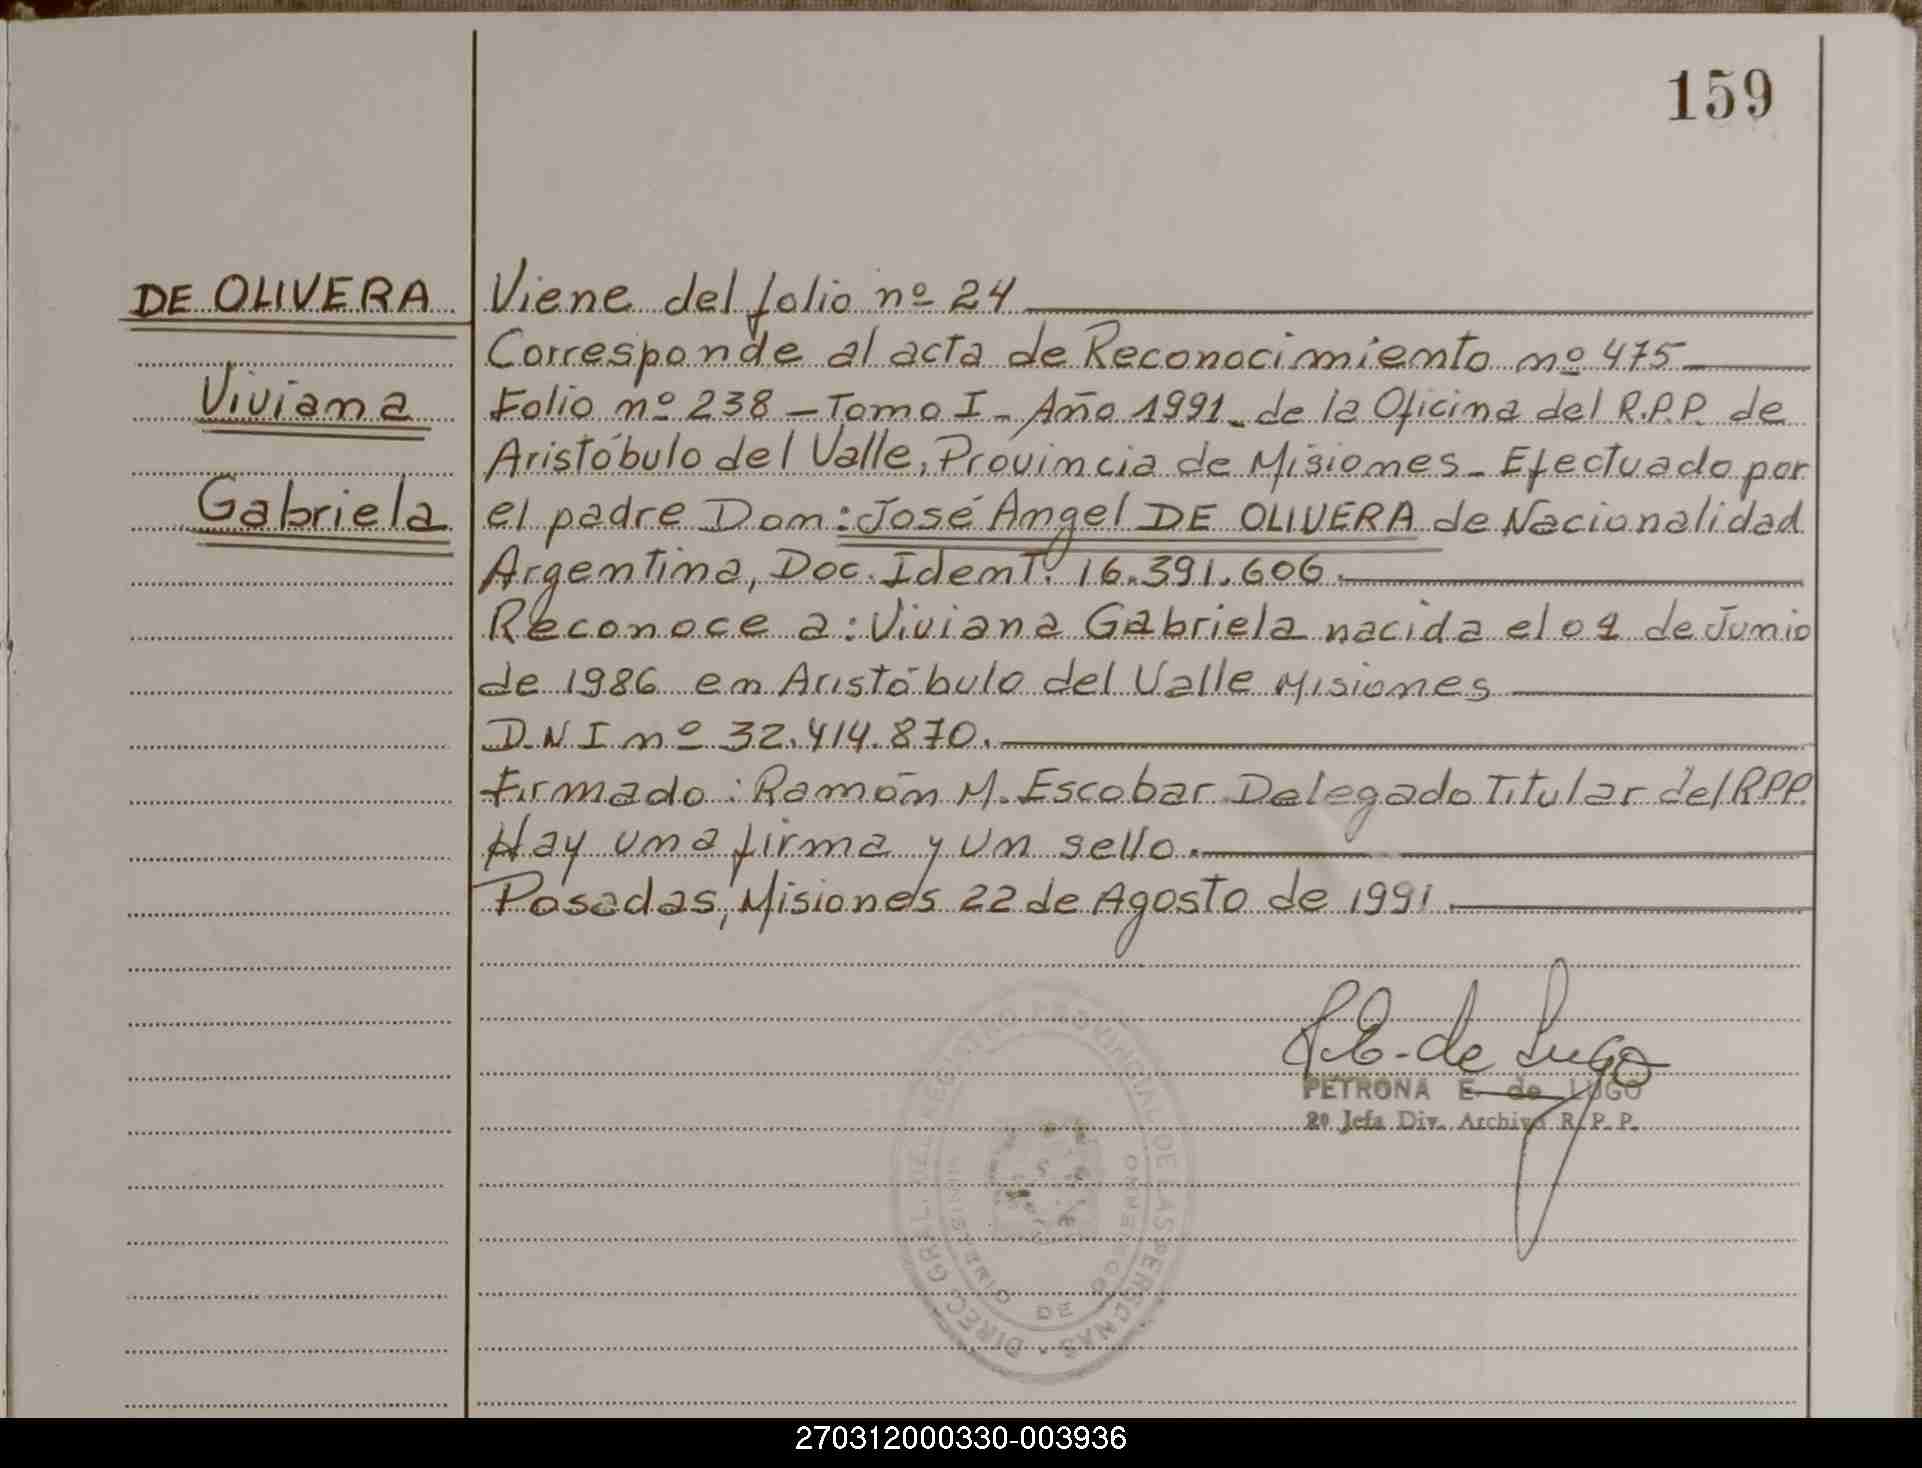 159
DE OLIVERA
Viviana
Gabriela
Viene del folio nº 24
Corresponde al acta de Reconocimiento nº 475
Folio nº 238 - Tomo I - Año 1991 - de la Oficina del R.P.P. de
Aristóbulo del Valle, Provincia de Misiones - Efectuado por
el padre Don: José Angel DE OLIVERA de Nacionalidad
Argentina, Doc. Ident. 16.391.606.
Reconoce a: Viviana Gabriela nacida el 09 de Junio
de 1986 en Aristóbulo del Valle Misiones
D.N.I nº 32.414.870.
Firmado: Ramón M. Escobar Delegado Titular del RPP.
Hay una firma y un sello.
Posadas, Misiones 22 de Agosto de 1991.
P.E. de Lugo
PETRONA E. de LUGO
2º Jefa Div. Archivo R. P. P.
DIREC. GRAL. DEL REGISTRO PROVINCIAL DE LAS PERSONAS
DE GOBIERNO
270312000330-003936